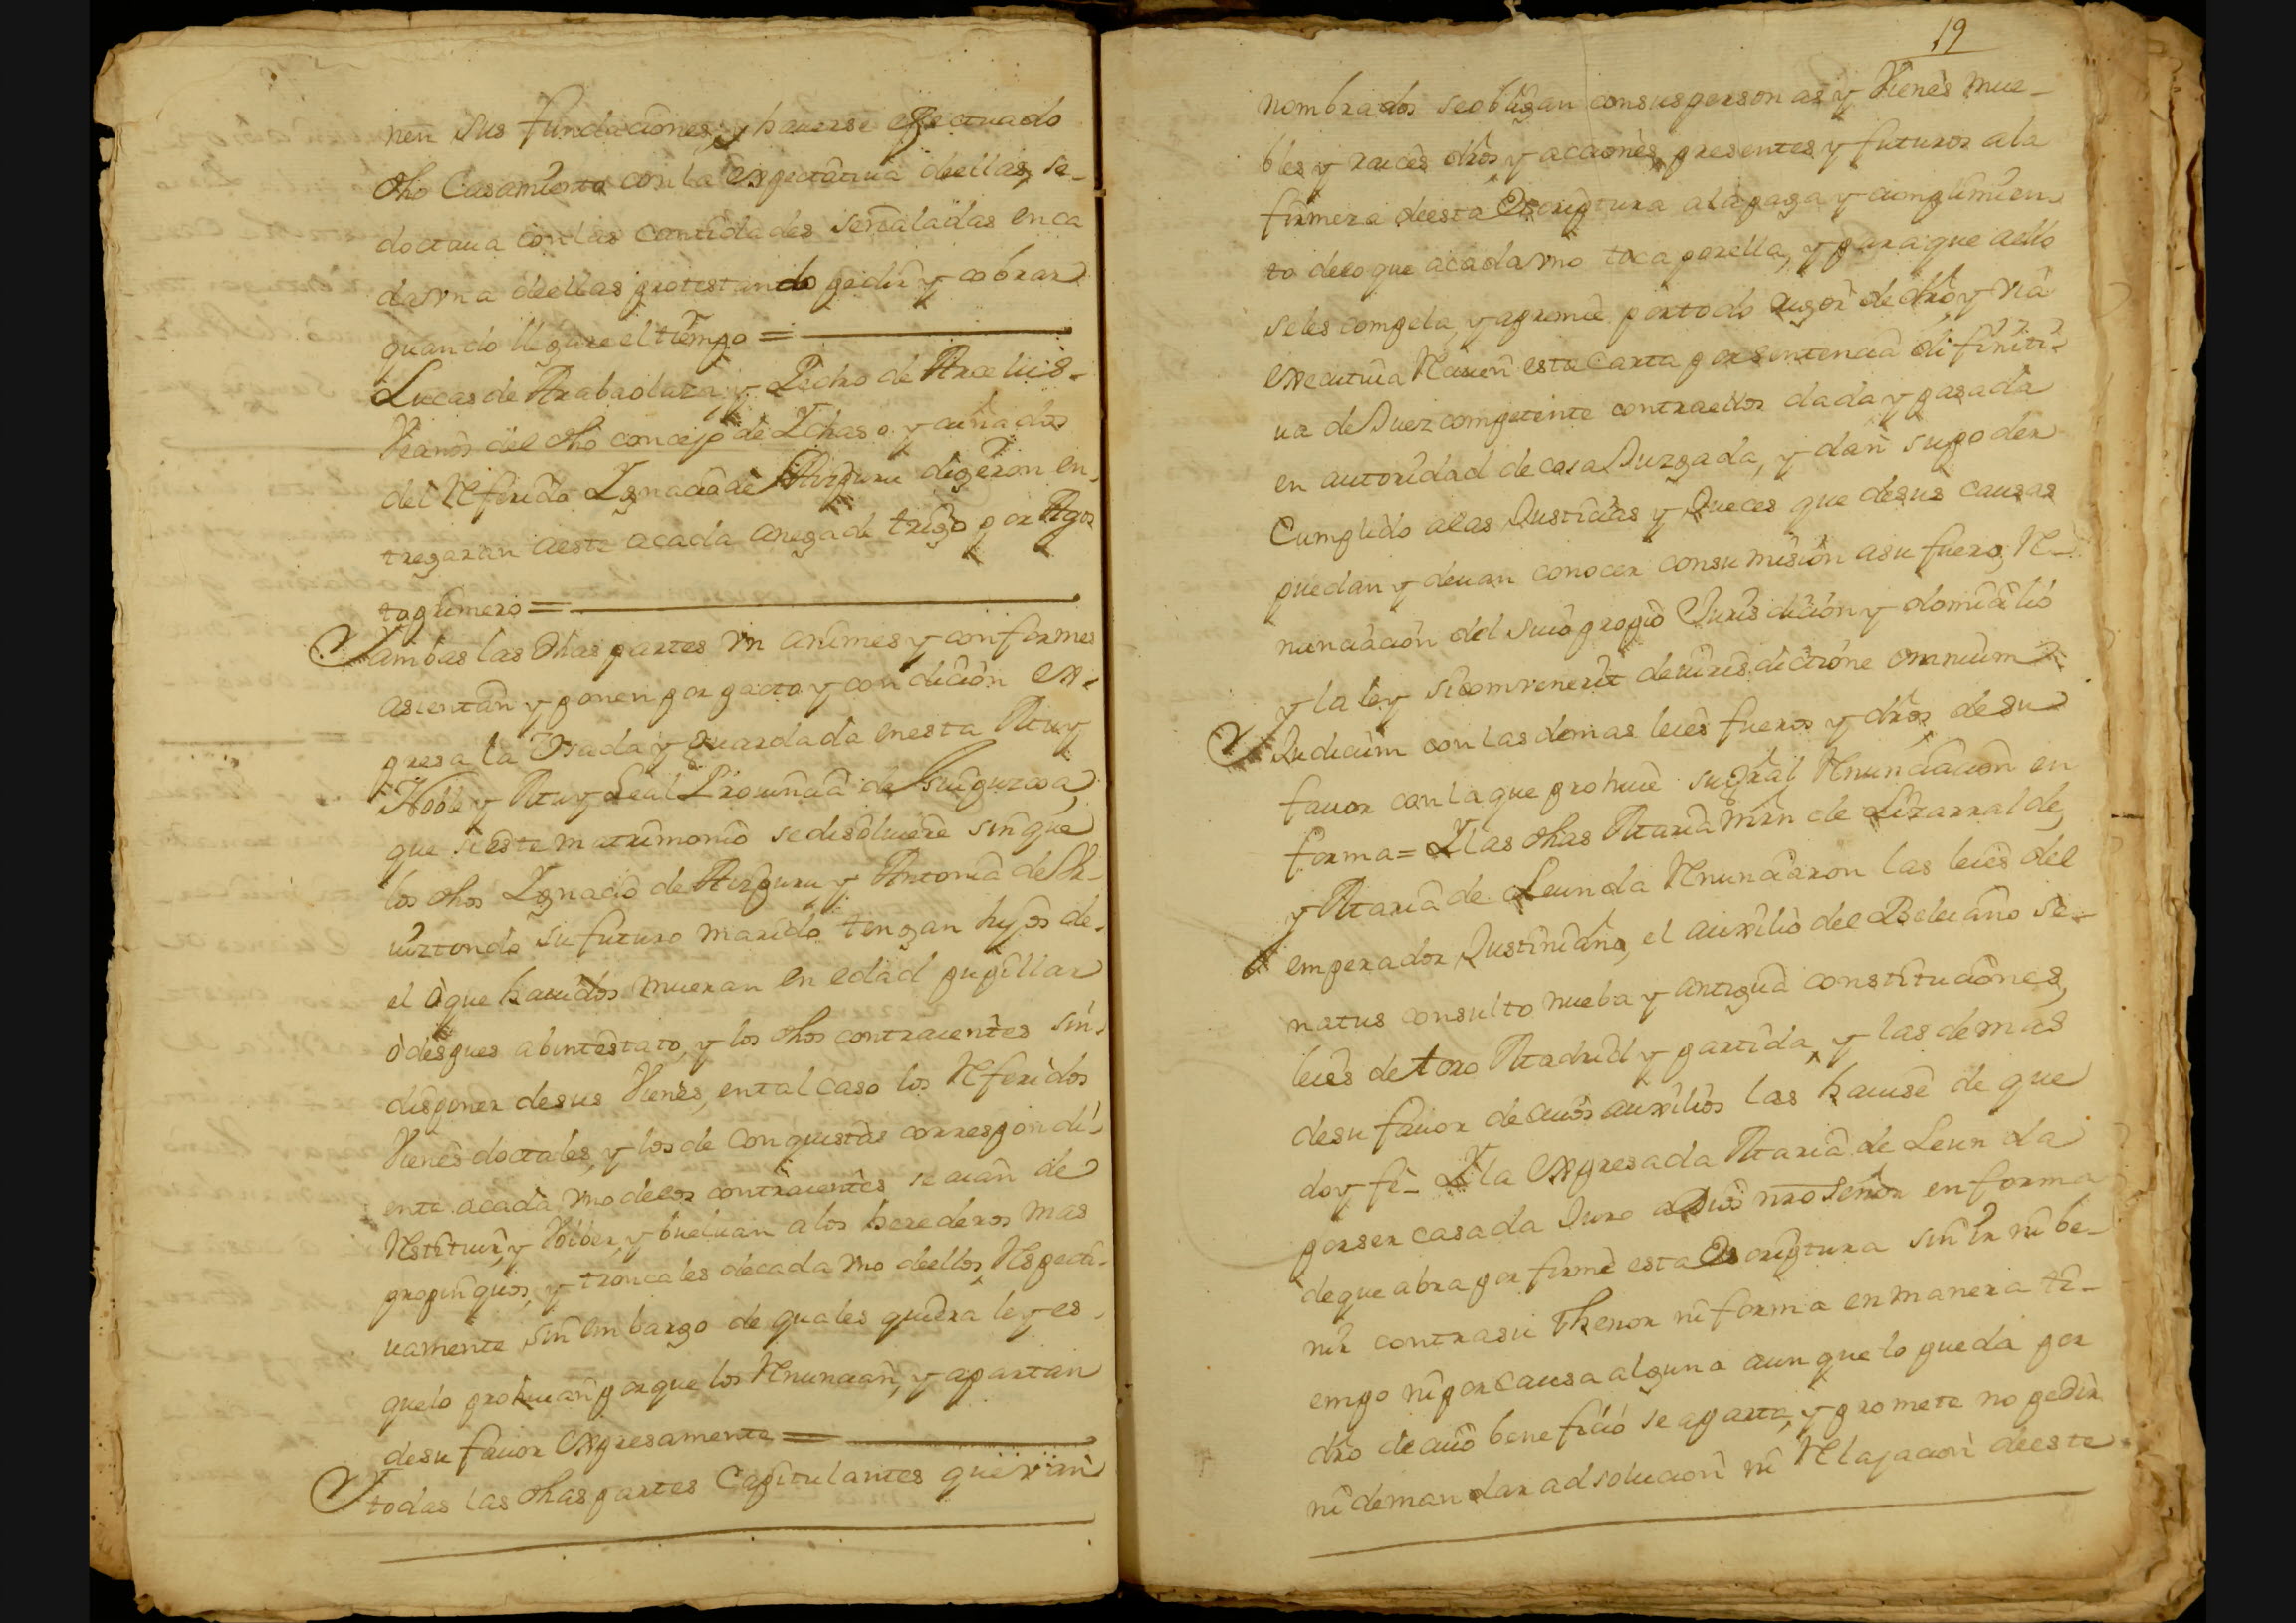 nen sus fundaciones, y hauerse efectuado
dho Casamiento con la expectatiua deellas, se
doctaua con las cantidades señaladas en ca
da vna deellas protestando pedir y cobrar
quando llegare el tiempo =
Lucas de Arabaolaza, y Pedro de Arce
Vecinos del dho concejo de Ichaso y cuñados
del Referido Ignacio de Aizpuru digeron en-
tregaran aeste acada anega de trigo por Agos
to primero =
Y ambas las dhas partes vn animes y conformes
asientan y ponen por pacto y condicion ex-
presa la Vsada y Guardada enesta Muy
Noble y Muy Leal Prouincia de Guipuzcoa,
que si este matrimonio se disoluiere sin que
los dhos Ignacio de Aizpuru y Antonia de
uiztondo su futuro marido tengan hijos de
el ò que hauidos mueran en edad pupillar
ò despues abintestato, y los dhos contraientes sin
disponer desus Vienes, ental caso los Referidos
Vienes doctales, y los de conquistas correspondi-
ente acada vno delos contraientes se aian de
Restituir, y Volber, y bueluan a los herederos mas
propinquos, y troncales decada vno deellos, Respecti-
uamente sin embargo de quales quiera leyes
quelo prohiuan porque los Renuncian, y apartan
desu fauor expresamente =
Y todas las dhas partes Capitulantes que van
19
nombrados se obligan consus personas y Vienes mue-
bles y raices dros y acciones presentes y futuros ala
firmeza deesta Escriptura ala paga y cumplimien
to delo que acada vno toca porella, y para que aello
seles compela, y apremie portodo rigor de dro y via
executiua Rauen esta carta por sentencia difiniti-
ua de Juez competente contraellos dada y pasada
en autoridad de cosa Juzgada, y dan su poder
Cumplido alas Justicias y Jueces que desus causas
puedan y deuan conocer consumision asu fuero, Re-
nunciacion del suio propio Jurisdicion y domicilio
y la ley sicomvenerit deiurisdictione omnium
Judicum con las demas leies fueros y dros de su
fauor con la que prohiue su gral Renunciacion en
forma = Y las dhas Maria Mrn de Lizarralde,
y Maria de Leunda Renunciaron las leies del
emperador Justiniano, el auxilio del Beleiano se-
natus consulto nueba y antigua constituciones,
leies de toro Madrid y partida, y las demas
desu fauor decuios auxilios las hauise de que
doy fe - Y la expresada Maria de Leunda
porser casada Juro a Dios nro Señor en forma
deque abra por firme esta Escriptura sin ir ni be-
nir contrasu thenor ni forma en manera ti-
empo ni por causa alguna aun que lo pueda por
dro de cuio beneficio se aparta, y promete no pedir
ni demandar adsolucion ni Relajacion deeste